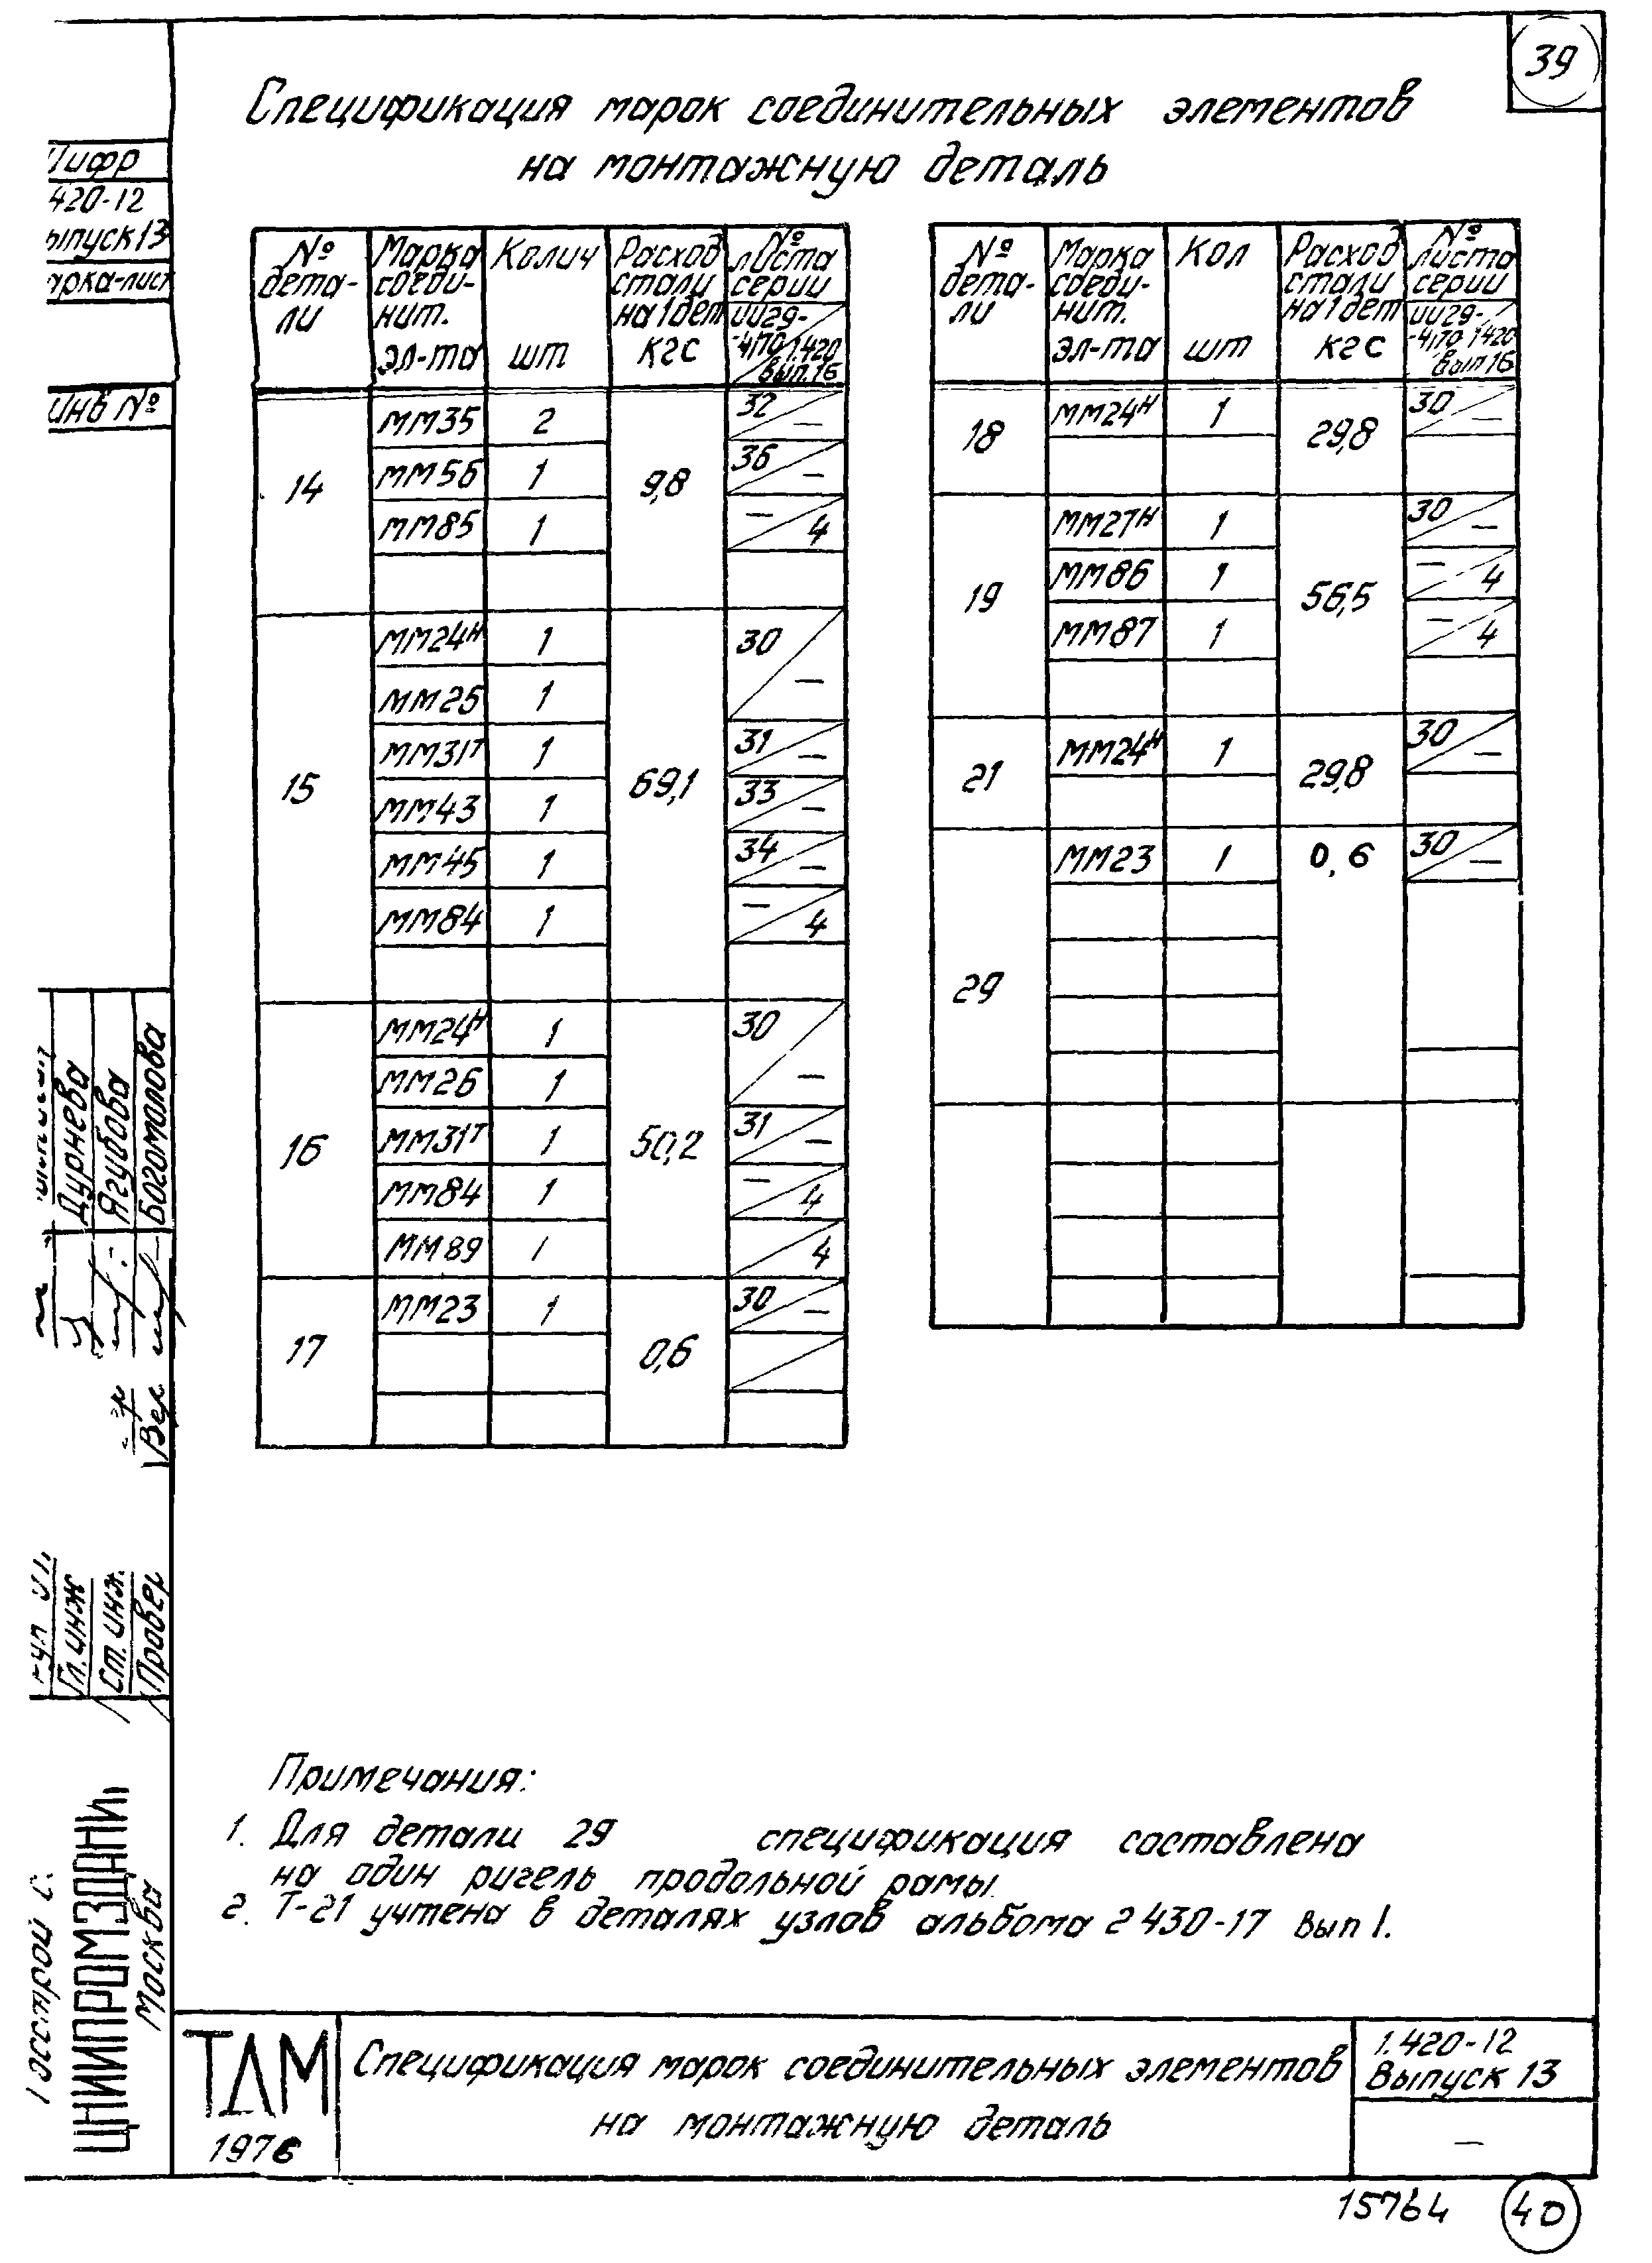 39
Спецификация марок соединительных элементов
на монтажную деталь
420-12
Выпуск 13
Инв №
№ дета-ли | Марка соеди-нит. эл-та | Колич шт | Расход стали на 1 дет кгс | № листа серии ИИ29-4/70 / 1.420 вып. 16
14 | ММ35 | 2 | 9,8 | 32 / —
ММ56 | 1 | 36 / —
ММ85 | 1 | — / 4
15 | ММ24н | 1 | 69,1 | 30 / —
ММ25 | 1
ММ31т | 1 | 31 / —
ММ43 | 1 | 33 / —
ММ45 | 1 | 34 / —
ММ84 | 1 | — / 4
16 | ММ24н | 1 | 50,2 | 30 / —
ММ26 | 1
ММ31т | 1 | 31 / —
ММ84 | 1 | — / 4
ММ89 | 1 | / 4
17 | ММ23 | 1 | 0,6 | 30 / —
№ дета-ли | Марка соеди-нит. эл-та | Кол шт | Расход стали на 1 дет кгс | № листа серии ИИ29-4/70 / 1.420 вып 16
18 | ММ24н | 1 | 29,8 | 30 / —
19 | ММ27н | 1 | 56,5 | 30 / —
ММ86 | 1 | — / 4
ММ87 | 1 | — / 4
21 | ММ24н | 1 | 29,8 | 30 / —
29 | ММ23 | 1 | 0,6 | 30 / —
Дурнева
Ягубова
Богомолова
Гл. инж
Ст. инж.
Провер
ЦНИИПРОМЗДАНИ
Москва
Примечания:
1. Для детали 29 спецификация составлена
на один ригель продольной рамы.
2. Т-21 учтена в деталях узлов альбома 2 430-17 вып 1.
ТДМ
1976
Спецификация марок соединительных элементов
на монтажную деталь
1.420-12
Выпуск 13
—
15764
40